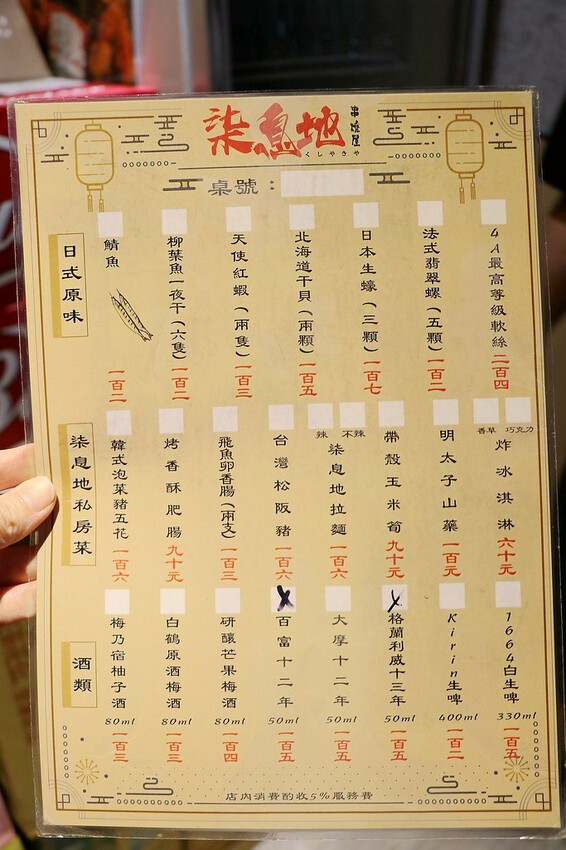 柒息地
串燒屋
くしやきや
桌號：
日式原味
4A最高等級軟絲 二百四
法式翡翠螺（五顆） 一百二
日本生蠔（三顆） 一百七
北海道干貝（兩顆） 一百五
天使紅蝦（兩隻） 一百三
柳葉魚一夜干（六隻） 一百二
鯖魚 一百二
柒息地私房菜
香草 巧克力
炸冰淇淋 六十元
明太子山藥 一百元
帶殼玉米筍 九十元
辣 不辣
柒息地拉麵 一百六
台灣松阪豬 一百六
飛魚卵香腸（兩支） 一百三
烤香酥肥腸 九十元
韓式泡菜豬五花 一百六
酒類
1664白生啤 330ml 一百五
Kirin生啤 400ml 一百二
格蘭利威十三年 50ml 一百五
大摩十二年 50ml 一百五
百富十二年 50ml 一百五
研釀芒果梅酒 80ml 一百四
白鶴原酒梅酒 80ml 一百三
梅乃宿柚子酒 80ml 一百三
店內消費酌收5%服務費